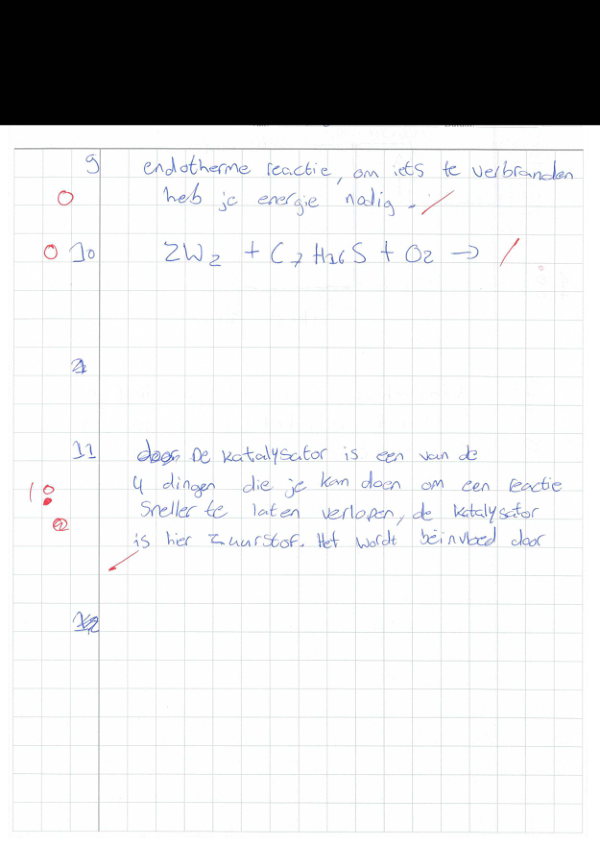 9 endotherme reactie, om iets te verbranden
0 heb je energie nodig.
0 10 ZW2 + C7H16S + O2 →
11 De katalysator is een van de
4 dingen die je kan doen om een reactie
10 sneller te laten verlopen, de katalysator
is hier zuurstof. Het wordt beinvloed door